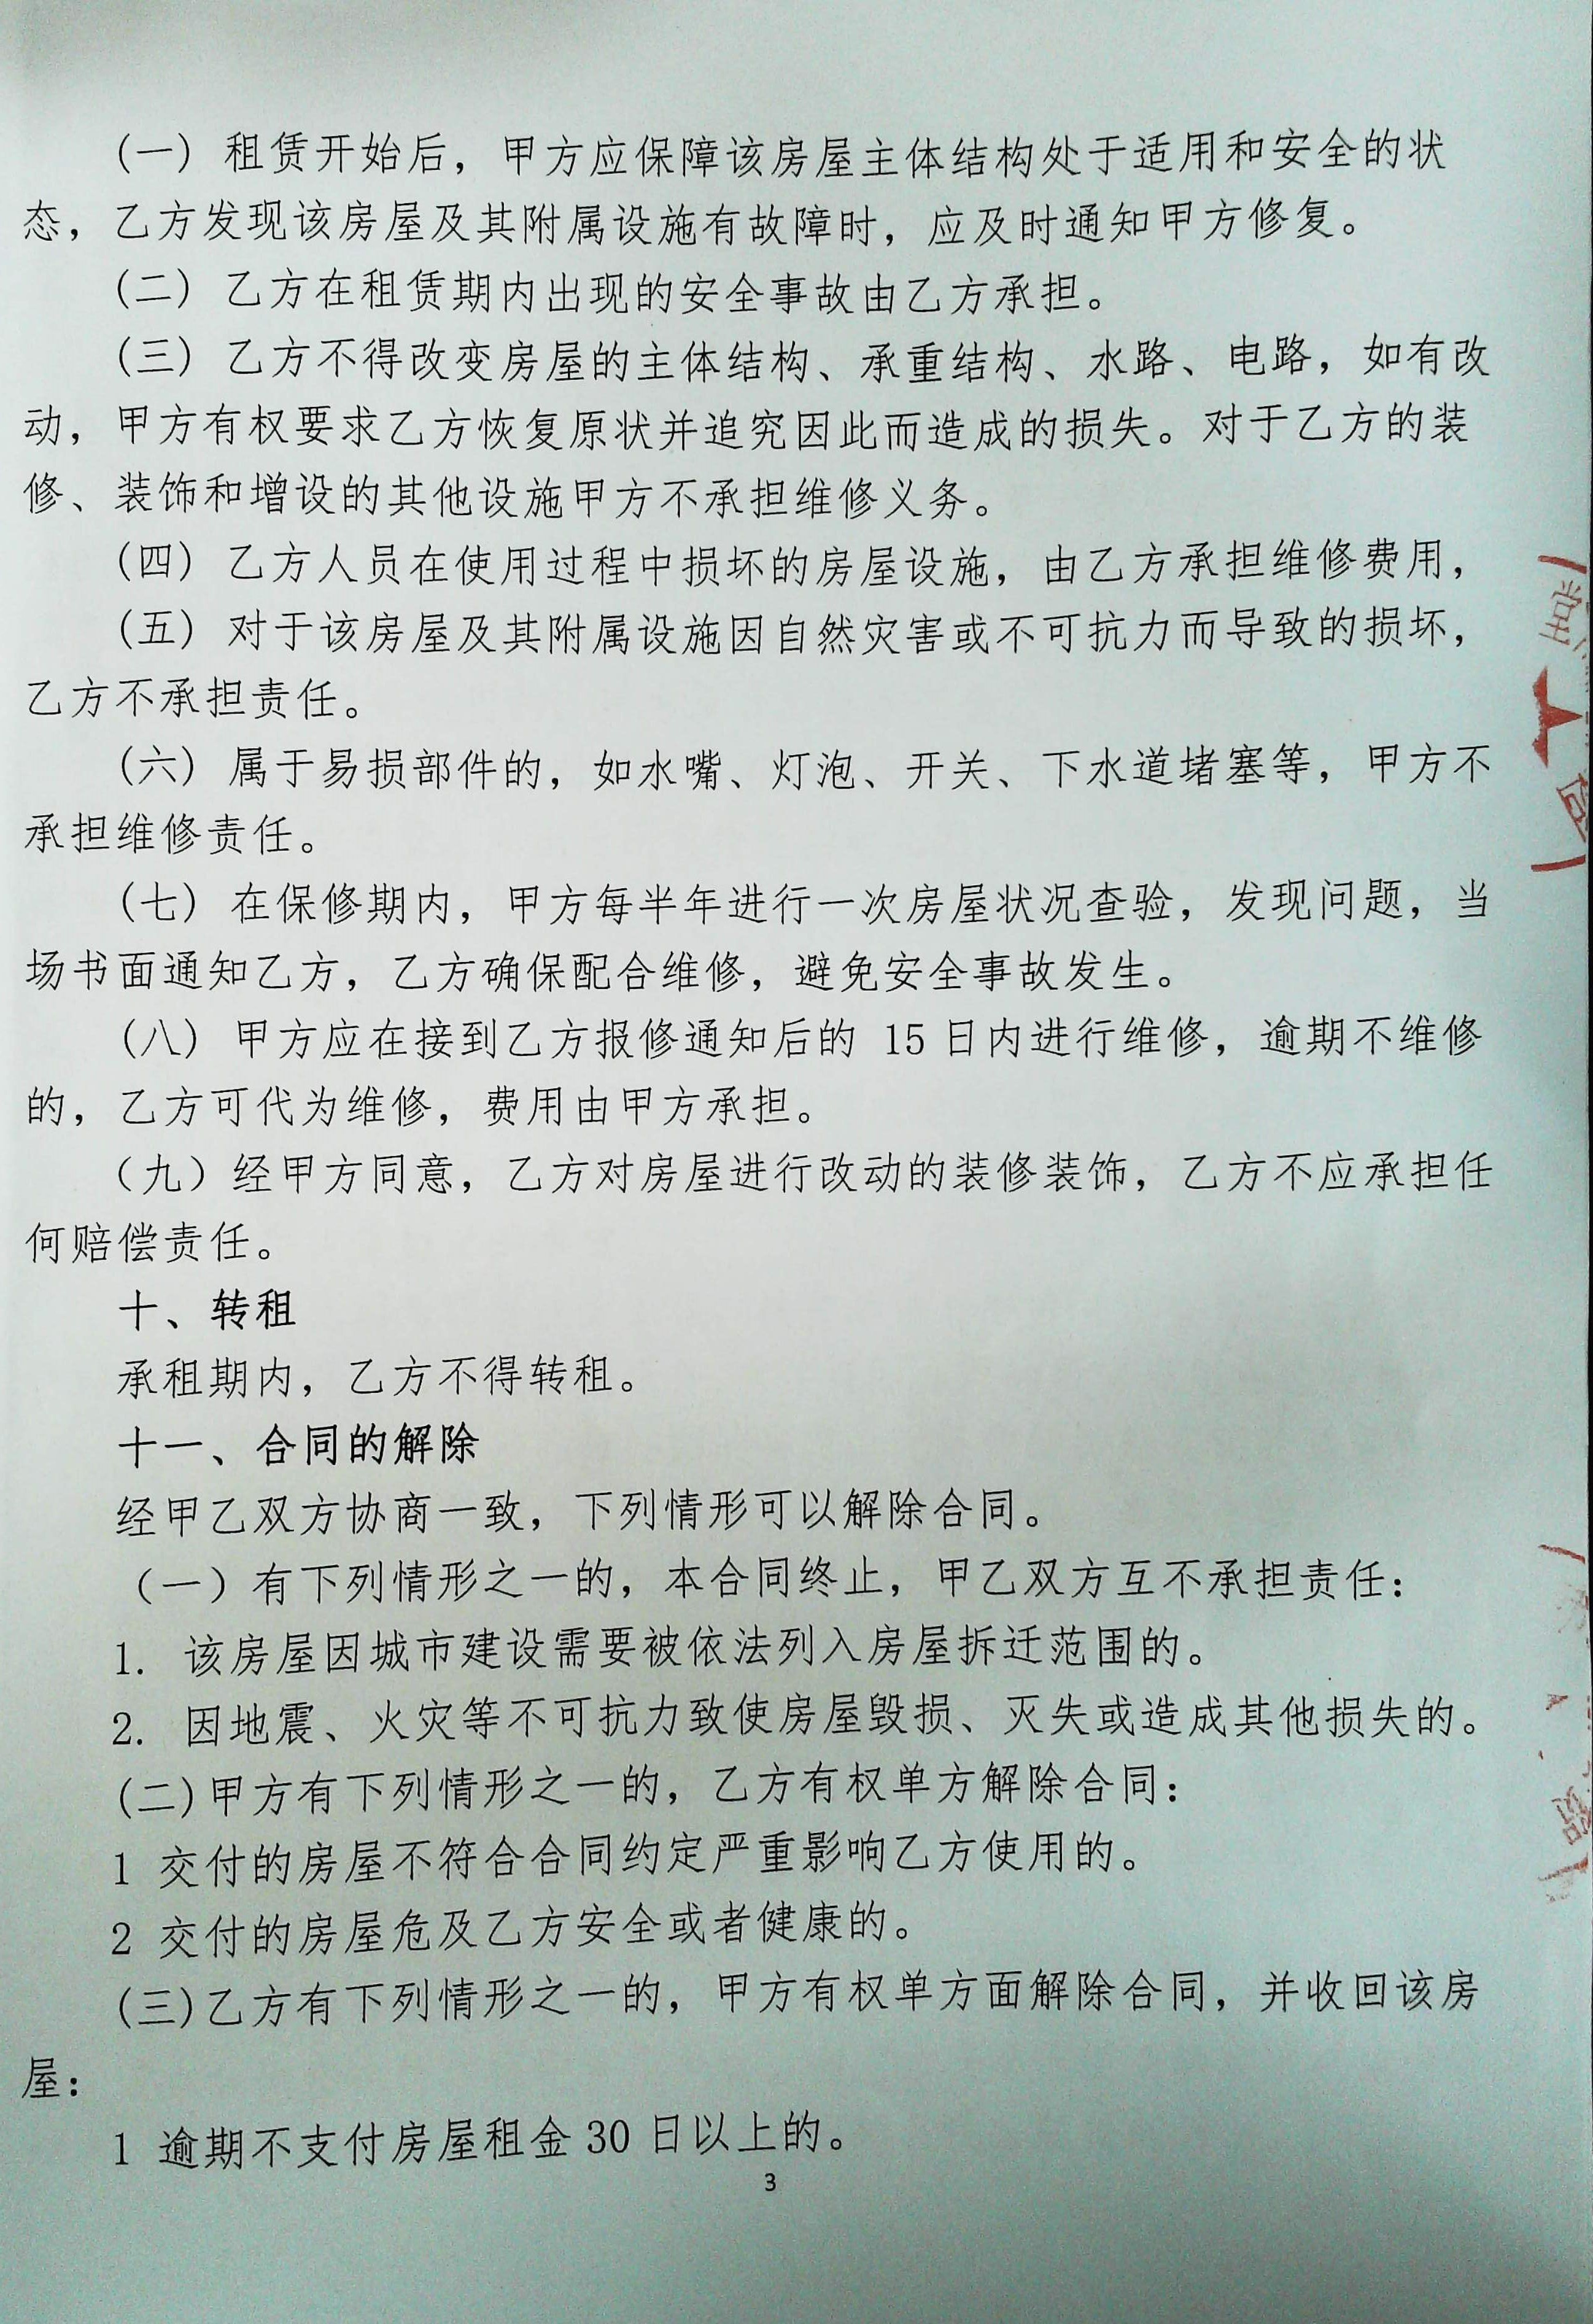 (一) 租赁开始后，甲方应保障该房屋主体结构处于适用和安全的状
态，乙方发现该房屋及其附属设施有故障时，应及时通知甲方修复。
(二) 乙方在租赁期内出现的安全事故由乙方承担。
(三) 乙方不得改变房屋的主体结构、承重结构、水路、电路，如有改
动，甲方有权要求乙方恢复原状并追究因此而造成的损失。对于乙方的装
修、装饰和增设的其他设施甲方不承担维修义务。
(四) 乙方人员在使用过程中损坏的房屋设施，由乙方承担维修费用，
(五) 对于该房屋及其附属设施因自然灾害或不可抗力而导致的损坏，
乙方不承担责任。
(六) 属于易损部件的，如水嘴、灯泡、开关、下水道堵塞等，甲方不
承担维修责任。
(七) 在保修期内，甲方每半年进行一次房屋状况查验，发现问题，当
场书面通知乙方，乙方确保配合维修，避免安全事故发生。
(八) 甲方应在接到乙方报修通知后的 15 日内进行维修，逾期不维修
的，乙方可代为维修，费用由甲方承担。
（九）经甲方同意，乙方对房屋进行改动的装修装饰，乙方不应承担任
何赔偿责任。
十、转租
承租期内，乙方不得转租。
十一、合同的解除
经甲乙双方协商一致，下列情形可以解除合同。
（一）有下列情形之一的，本合同终止，甲乙双方互不承担责任：
1. 该房屋因城市建设需要被依法列入房屋拆迁范围的。
2. 因地震、火灾等不可抗力致使房屋毁损、灭失或造成其他损失的。
(二)甲方有下列情形之一的，乙方有权单方解除合同：
1 交付的房屋不符合合同约定严重影响乙方使用的。
2 交付的房屋危及乙方安全或者健康的。
(三)乙方有下列情形之一的，甲方有权单方面解除合同，并收回该房
屋：
1 逾期不支付房屋租金 30 日以上的。
3